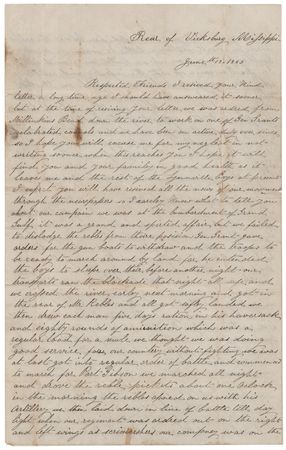 Rear of Vicksburg Mississippi
June 1863
Respected Friends I received your kind
letter a long time ago I should have answered it sooner
but at the time of receiving your letter we was ordered from
Millikens Bend down the river to work on one of Gen Grants
celebrated canals and we have been on active duty ever since
so I hope you will excuse me for my neglect in not
writing sooner when this reaches you I hope it will
find you and your family in good health as it
leaves me and the rest of the Boys at present
I expect you will have received all the news of our movements
through the newspapers so I hardly know what to tell you
about our campain we was at the bombardment of Grand
Gulf it was a grand and affair but we failed
to dislodge the rebls from there position Gen Grant gave
orders for the gun boats to withdraw and the troops to
be ready to march around by land for he intended
the boys to slope over there before another night our
transports ran the blockade that night all safe and
we crossed the river early next morning and got in
the rear of Mr Rebles and all got safly landed we
then drew each man five days ration in his haversack
and eighty rounds of amunition which was a
regular load for a mule we thought we was doing
good service for our country without fighting we was
at last got into regular order of battle and commenced
to march for Port Gibson we marched all night
and drove the reble pickets about one oclock
in the morning the rebles opened on us with his
Artillery we then laid down in line of battle till day
light when our regiment was ordered out on the right
and left wings as scirmishers our company was on the